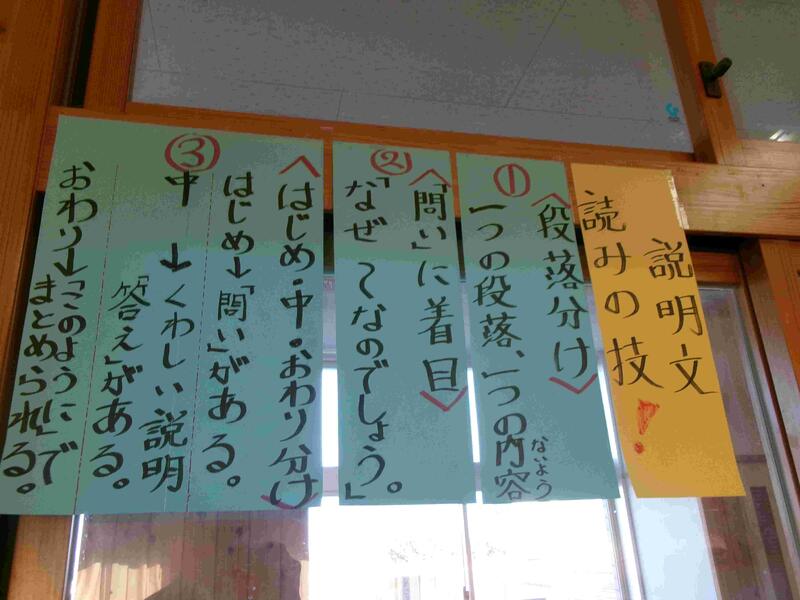 説明文
読みの技!
①
〈段落分け〉
一つの段落、一つの内容
ないよう
②
〈「問い」に着目〉
「なぜ〜なのでしょう」。
③
〈はじめ・中・おわり分け〉
はじめ→「問い」がある。
中 → くわしい説明
「答え」がある。
おわり→「このように」で
まとめられる。